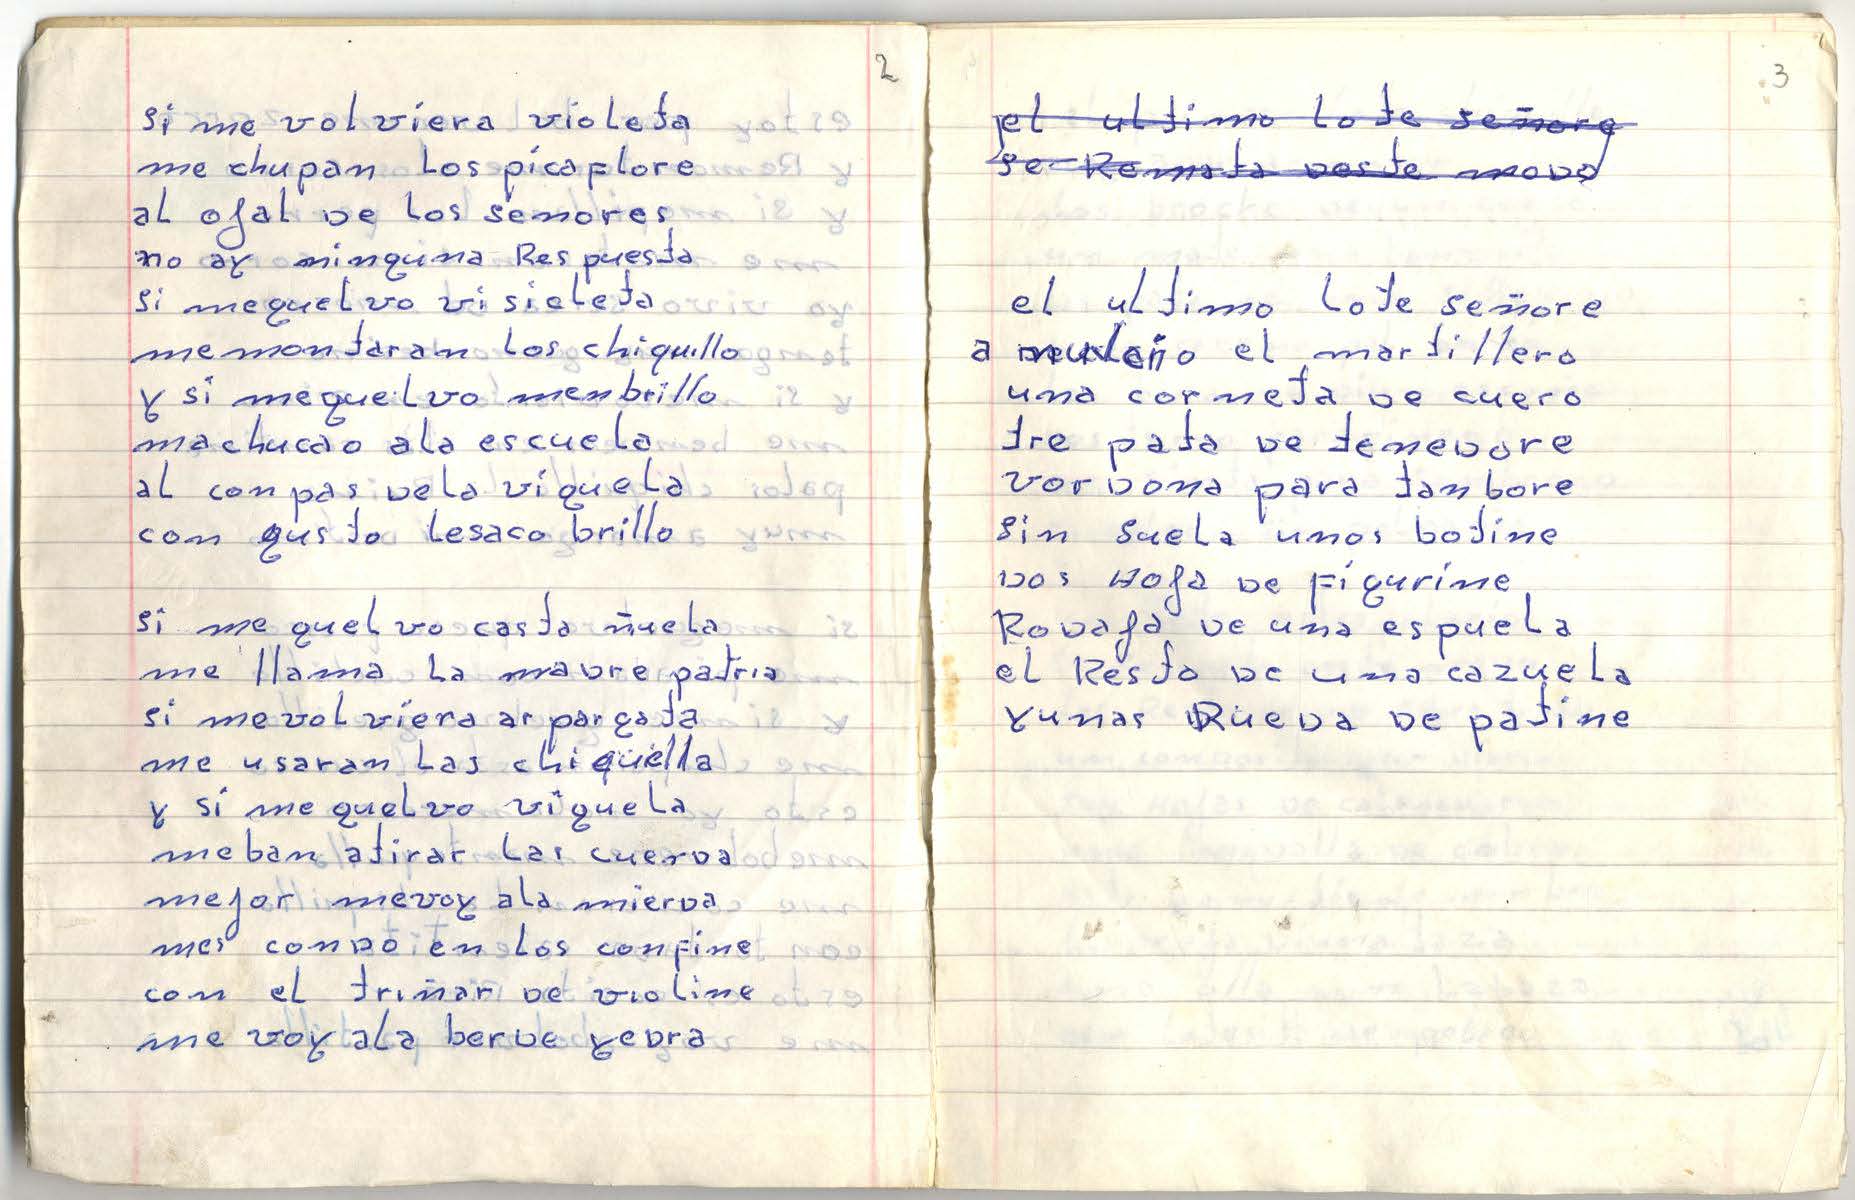 2
si me volviera violeta
me chupan los picaflore
al ojal de los señores
no ay ninguna Respuesta
si mequelvo visieleta
me montaran los chiquillo
y si mequelvo menbrillo
machucao ala escuela
al conpas dela viguela
con gusto lesaco brillo
si me quelvo castañuela
me llama la madre patria
si me volviera arpargata
me usaran las chiquella
y si me quelvo viguela
meban atirar las cuerda
mejor mevoy ala mierda
mes condo en los confine
con el triñar de violine
me voy ala berde yedra
3
el ultimo lote señore
se Remata deste modo
el ultimo lote señore
a el martillero
una corneta de cuero
tre pata de tenedore
vordona para tanbore
sin suela unos botine
dos Hoja de figurine
Rodaja de una espuela
el Resto de una cazuela
yunas Rueda de patine